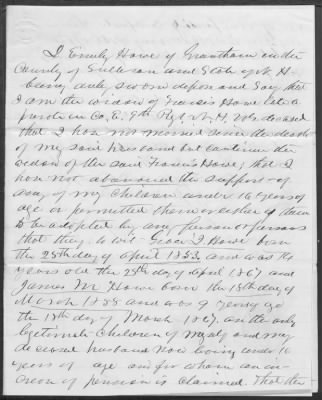 I Emily Howe of Grantham in the
County of Sullivan and State of N. H.
being duly sworn depose and say that
I am the widow of Francis Howe late a
private in Co. E. 9th Regt N. H. Vols deceased
that I have not married since the death
of my said husband but continue the
widow of the said Francis Howe; that I
have not abandoned the support of
any of my children under 16 years of
age or permitted them or either of them
to be adopted by any person or persons
that they to wit Grace I Howe born
the 28th day of April 1853 and was 14
years old the 28th day of April 1867 and
James M Howe born the 18th day of
March 1858 and was 9 years old
the 18th day of March 1867 are the only
legitimate children of myself and my
deceased husband now living under 16
years of age and for whom an in-
crease of pension is claimed. That the